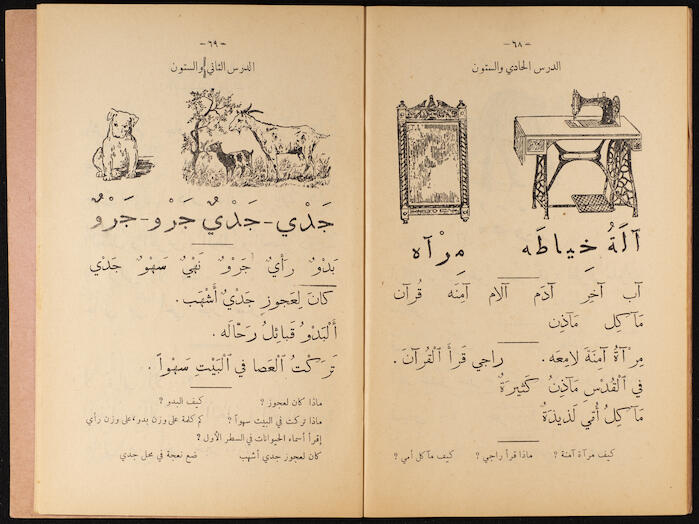 - ٦٨ -
الدرس الحادي والستون
آلَةُ خِياطَه مِرْآه
آب آخِر آدَم آلام آمِنَه قُرآن
مَآكِل مَآذِن
مِرْآةُ آمِنَةَ لامِعَه. راجي قَرَأَ الْقُرْآنَ.
في الْقُدْسِ مَآذِنُ كَثيرَةٌ
مَآكِلُ أُمّي لَذيذَةٌ
كيف مرآة آمنة ؟ ماذا قرأ راجي ؟ كيف مآكل أمي ؟
- ٦٩ -
الدرس الثاني والستون
جَدْي - جَدْيٌ جَرْو - جَرْوٌ
بَدْوٌ رَأْيٌ جَرْوٌ نَهْيٌ سَهْوٌ جَدْي
كانَ لِعَجوزٍ جَدْيٌ أَشْهَب.
أَلْبَدْوُ قَبائِلُ رَحّالَه.
تَرَكْتُ الْعَصا في الْبَيْتِ سَهْواً.
ماذا كان لعجوز ؟ كيف البدو ؟
ماذا تركت في البيت سهواً ؟ كم كلمة على وزن بدو، على وزن رأي
إقرأ أسماء الحيوانات في السطر الأول ؟
كان لعجوز جدي أشهب ضع نعجة في محل جدي